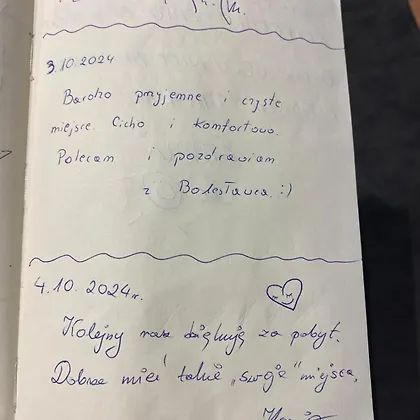 3.10.2024
Bardzo przyjemne i czyste
miejsce. Cicho i komfortowo.
Polecam i pozdrawiam
z Bolesławca. :)
4.10.2024r.
Kolejny raz dziękuję za pobyt.
Dobrze mieć takie „swoje” miejsca,